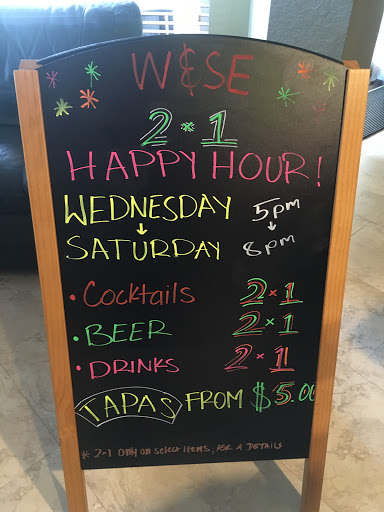 W&SE
2×1
HAPPY HOUR!
WEDNESDAY 5pm
SATURDAY 8pm
• Cocktails 2×1
• BEER 2×1
• DRINKS 2×1
TAPAS FROM $5.00
* 2×1 Only on select items, ASK 4 DETAILS